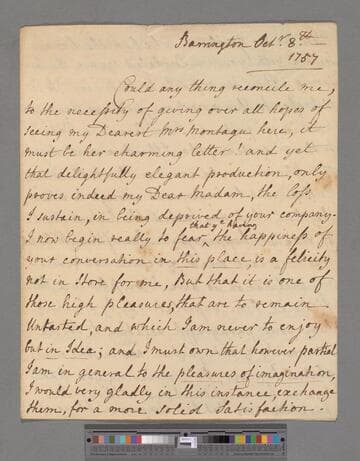 Barrington Octr. 8th.
1757
Could any thing reconcile me,
to the necessity of giving over all hopes of
seeing my Dearest Mrs Montagu here, it
must be her charming letter! and yet
that delightfully elegant production, only
proves indeed my Dear Madam, the Loss
I sustain, in being deprived of your company.
I now begin really to fear, that ye. the happiness of
your conversation in this place, is a felicity
not in Store for me, But that it is one of
those high pleasures, that are to remain
Untasted, and which I am never to enjoy
but in Idea; and I must own that however partial
I am in general to the pleasures of imagination,
I would very gladly in this instance, exchange
them, for a more solid Satisfaction.